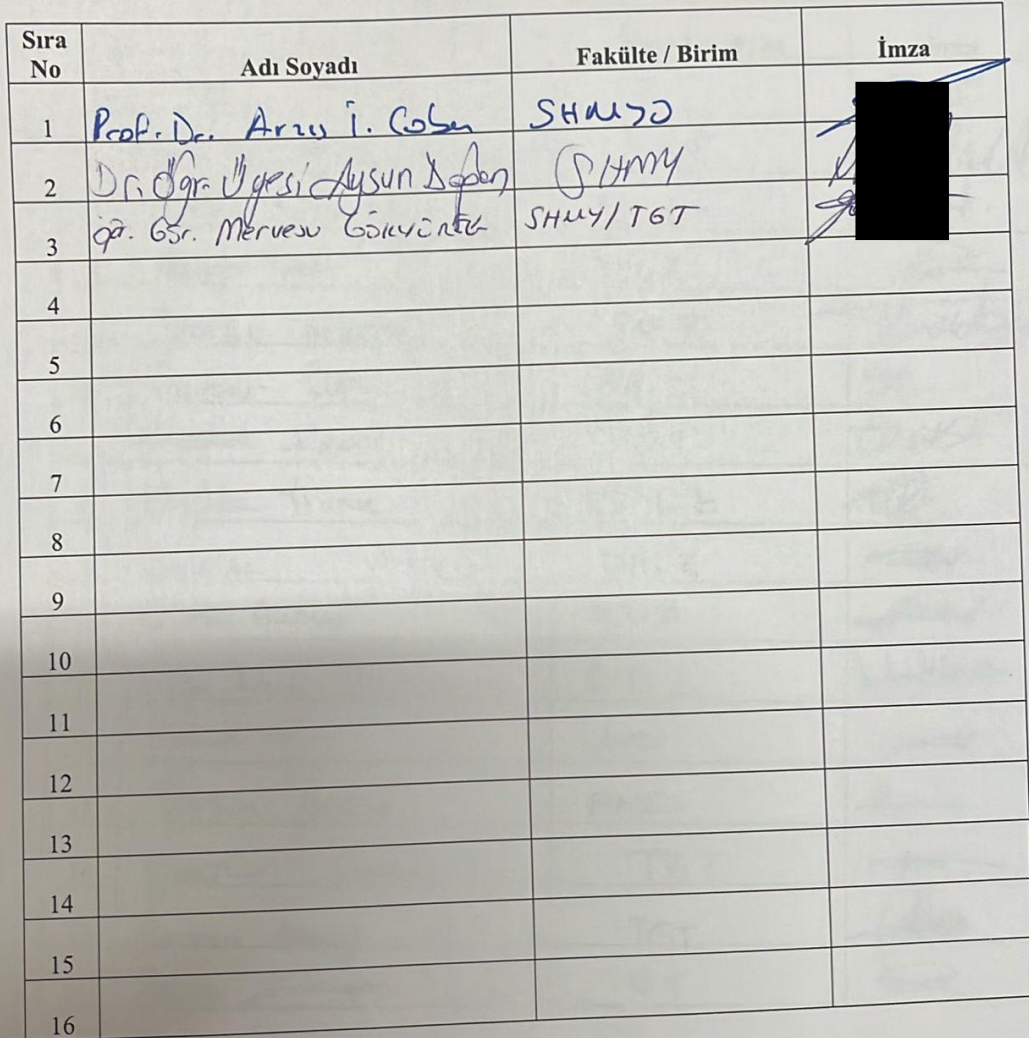 Sıra No Adı Soyadı Fakülte / Birim İmza
1 Prof. Dr. Arzu İ. Çoban SHMYO
2 Dr. Öğr. Üyesi Aysun SHMY
3 Öğ. Gör. Mervesu SHMY/TGT
4
5
6
7
8
9
10
11
12
13
14
15
16